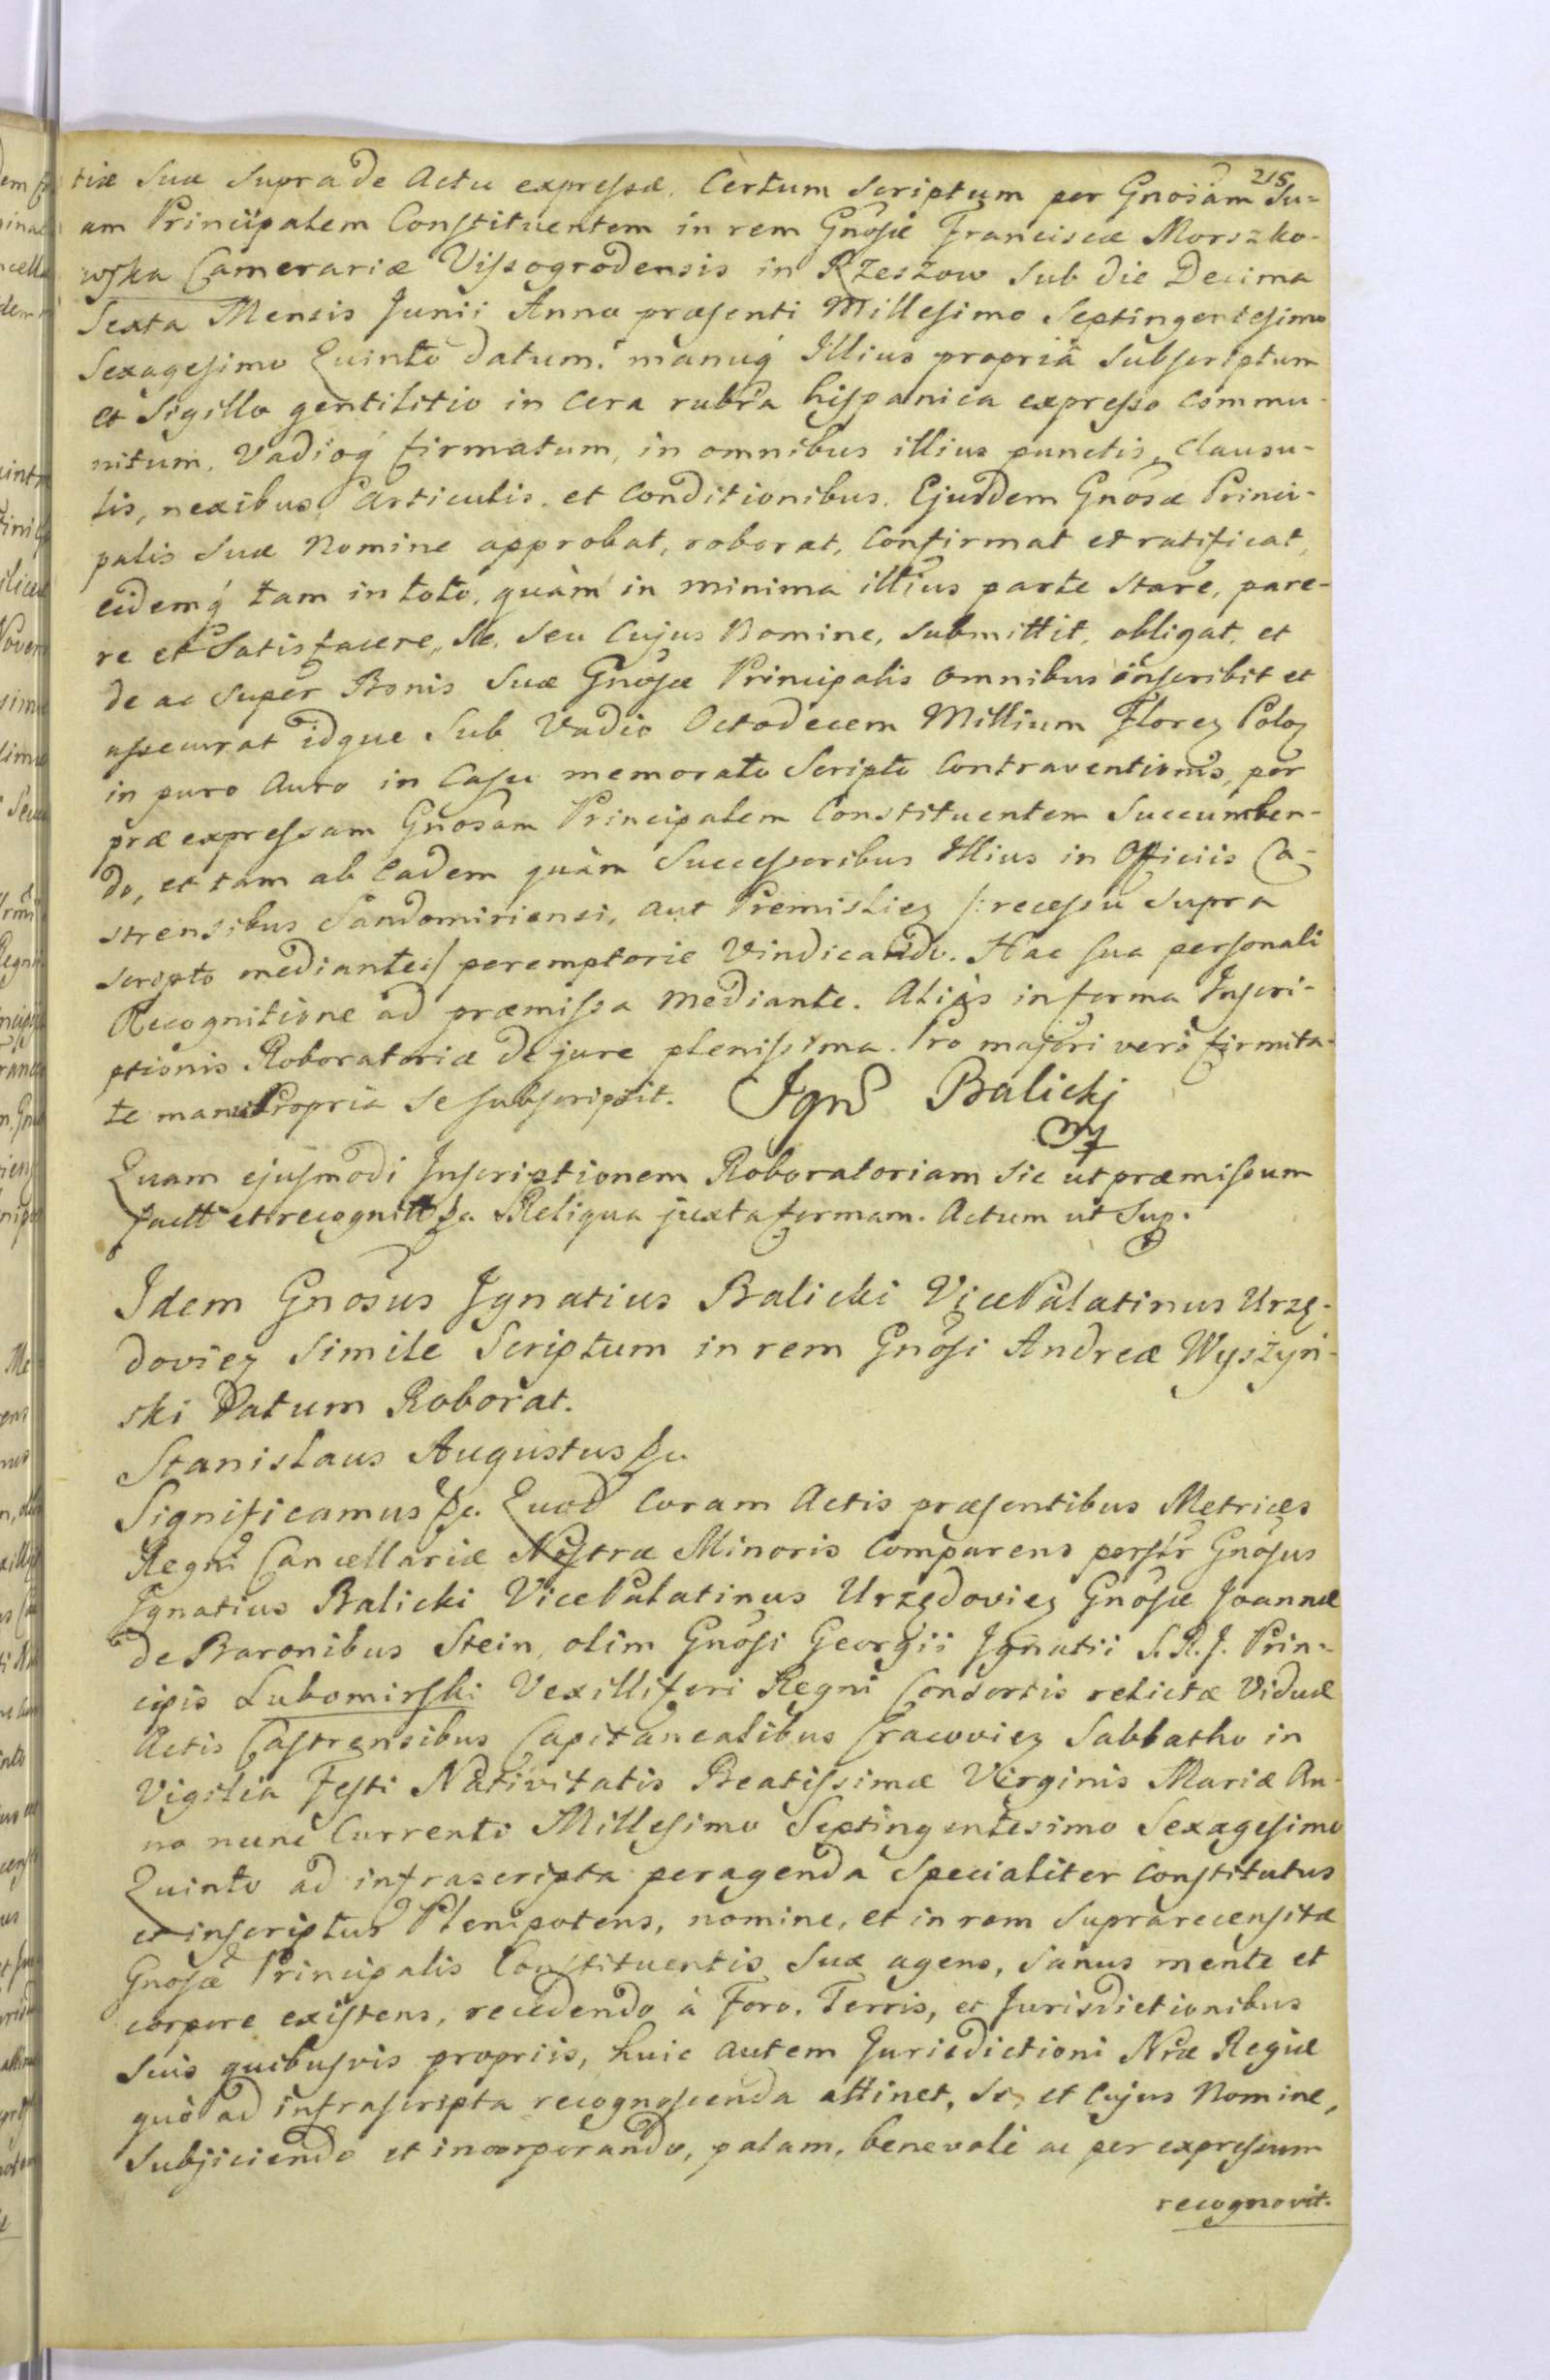 215
tiæ Suæ Supra de Actu expressæ. Certum Scriptum per Gnosam Su=
am Principalem Constituentem in rem Gnosæ Franciscæ Morszko-
wska Camerariæ Vissogrodensis in Rzeszow Sub die Decima
Sexta Mensis Junii Anno præsenti Millesimo Septingentesimo
Sexagesimo Quinto datum. manuq́ Illius propriâ Subscriptum
et Sigillo gentilitio in Cera rubra hispanica expresso Commu-
nitum. Vadioq́ firmatum, in omnibus illius punctis, Clausu-
lis, nexibus Articulis. et Conditionibus. Ejusdem Gnosæ Princi-
palis Suæ Nomine approbat, roborat, Confirmat et ratificat,
eidemq́ tam in toto, quàm in minima illius parte Stare, pare-
re et Satisfacere, Se, Seu Cujus Nomine, Submittit, obligat, et
de ac Super Bonis Suæ Gnosæ Principalis Omnibus inscribit et
assecurat idque Sub Vadio Octodecem Millium Florez Poloz
in puro Auro in Casu memorato Scripto Contraventionis, per
præexpressam Gnosam Principalem Constituentem Succumben-
do, et tam ab Eadem quàm Successoribus Illius in Officiis Ca-
strensibus Sandomiriensi, aut Premisliez /: recessu Supra
scripto mediante :/ peremptorie Vindicando. Hac sua personali
Recognitione ad præmissa Mediante. Aliàs in forma Inscri-
ptionis Roboratoriæ de jure plenissima. Pro majori verò firmita-
te manu Propria Se subscripsit. Igna Balickj
mp
Quam ejusmodi Inscriptionem Roboratoriam Sic ut præmissum
factt et recognitt &c. Reliqua juxta formam. Actum ut Sup.
Idem Gnosus Ignatius Balicki VicePalatinus Urzę-
doviez Simile Scriptum in rem Gnosi Andreæ Wyszyń-
ski Datum Roborat.
Stanislaus Augustus &c.
Significamus &c. Quod Coram Actis præsentibus Metrices
Regni Cancellariæ Nostræ Minoris Comparens perstr Gnosus
Ignatius Balicki VicePalatinus Urzędoviez Gnosæ Joannæ
de Baronibus Stein, olim Gnosi Georgii Ignatii S. R. J. Prin=
cipis Lubomirski Vexilliferi Regni Consortis relictæ Viduæ
Actis Castrensibus Capitanealibus Cracoviez Sabbatho in
Vigilia Festi Nativitatis Beatissimæ Virginis Mariæ An-
no nunc Currenti Millesimo Septingentesimo Sexagesimo
Quinto ad infrascripta peragenda Specialiter Constitutus
et inscriptus Plenipotens, nomine, et in rem Suprarecensitæ
Gnosæ Principalis Constituentis Suæ agens, Sanus mente et
corpore existens, recedendo à Foro, Terris, et Jurisdictionibus
Suis quibusvis propriis, huic autem Jurisdictioni Nræ Regiæ
quò ad infrascripta recognoscenda attinet, Se, et Cujus Nomine,
Subjiciendo et incorporando, palam, benevolè ac per expressum
recognovit.